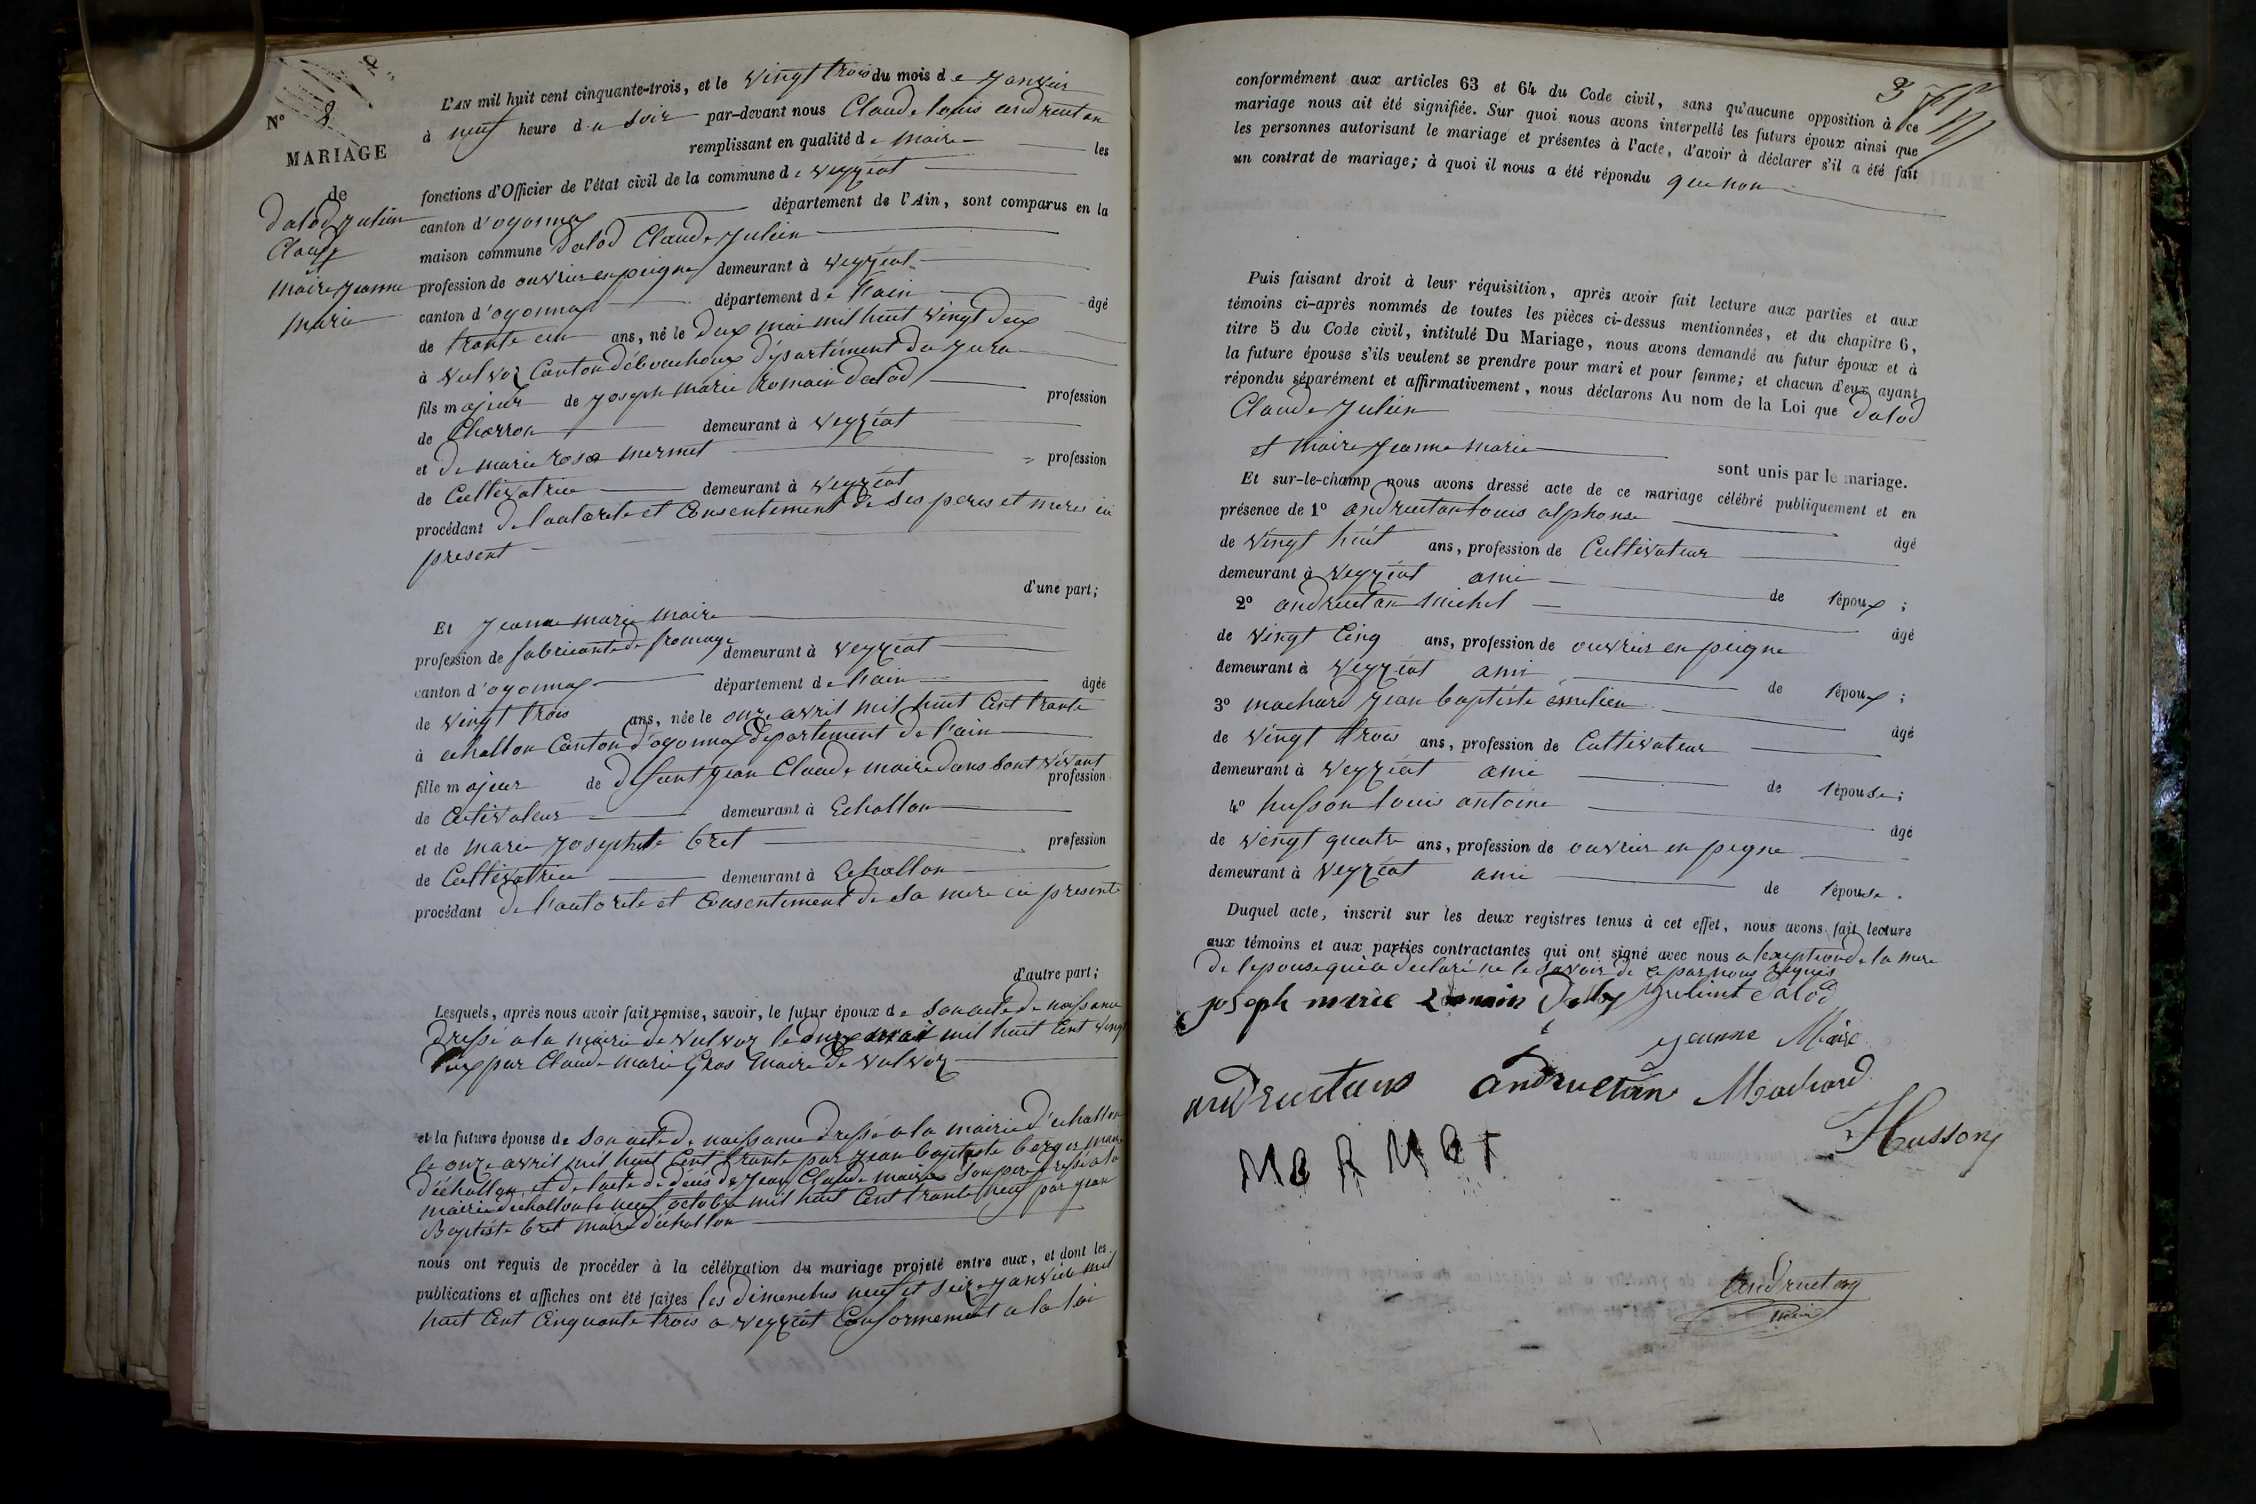 N° 8
MARIAGE
de
Dalod Julien
Claude
Maire Jeanne
Marie
L'AN mil huit cent cinquante-trois, et le vingt trois du mois de janvier
à neuf heure du soir par-devant nous Claude louis andruetan
remplissant en qualité de maire les
fonctions d'Officier de l'état civil de la commune de veyziat
canton d'oyonnax département de l'Ain, sont comparus en la
maison commune Dalod Claude Julien
profession de ouvrier en peigne demeurant à veyziat
canton d'oyonnax département de l'ain âgé
de trante un ans, né le deux mai mil huit vingt deux
à vulvoz Canton débouchoux département du jura
fils majeur de joseph marie Romain dalod profession
de Charron demeurant à veyziat
et de marie rose mermet profession
de Cultivatrice demeurant à veyziat
procédant de l'autorite et Consentement de ses peres et meres ici
present
d'une part;
Et jeanne marie maire
profession de fabricante de fromage demeurant à veyziat
canton d'oyonnax département de l'ain âgée
de vingt trois ans, née le onze avril mil huit Cent trante
à echallon Canton d'oyonnax département de l'ain
fille majeur de defunt jean Claude maire dans sont vivant profession
de Cultivateur demeurant à Echallon
et de marie josephete bret profession
de Cultivatrice demeurant à Echallon
procédant de l'autorite et Consentement de sa mere ici presente
d'autre part;
Lesquels, après nous avoir fait remise, savoir, le futur époux de son acte de naissance
dressé a la mairie de vulvoz le deux mai mil huit Cent vingt
deux par Claude marie Gros maire de vulvoz
et la future épouse de son acte de naissance dressé a la mairie d'echallon
le onze avril mil huit Cent trante par jean baptiste berger maire
d'échallon et de l'acte de décés de jean Claude maire son pere dressé a la
mairie d'echallon le neuf octobre mil huit Cent trante neuf par jean
Baptiste bret maire d'échallon
nous ont requis de procéder à la célébration du mariage projeté entre eux, et dont les
publications et affiches ont été faites les dimenches neuf et seize janvier mil
huit Cent Cinquante trois a veyziat Conformement a la loi
3
conformément aux articles 63 et 64 du Code civil, sans qu'aucune opposition à ce
mariage nous ait été signifiée. Sur quoi nous avons interpellé les futurs époux ainsi que
les personnes autorisant le mariage et présentes à l'acte, d'avoir à déclarer s'il a été fait
un contrat de mariage; à quoi il nous a été répondu que non
Puis faisant droit à leur réquisition, après avoir fait lecture aux parties et aux
témoins ci-après nommés de toutes les pièces ci-dessus mentionnées, et du chapitre 6,
titre 5 du Code civil, intitulé Du Mariage, nous avons demandé au futur époux et à
la future épouse s'ils veulent se prendre pour mari et pour femme; et chacun d'eux ayant
répondu séparément et affirmativement, nous déclarons Au nom de la Loi que Dalod
Claude Julien
et Maire Jeanne Marie sont unis par le mariage.
Et sur-le-champ nous avons dressé acte de ce mariage célébré publiquement et en
présence de 1° andruetan louis alphonse âgé
de vingt huit ans, profession de Cultivateur
demeurant à veyziat ami de l'époux;
2° andruetan michel âgé
de vingt Cinq ans, profession de ouvrier en peigne
demeurant à veyziat ami de l'époux;
3° machard jean baptiste émilien âgé
de vingt trois ans, profession de Cultivateur
demeurant à veyziat ami de l'épouse;
4° husson louis antoine âgé
de vingt quatre ans, profession de ouvrier en peigne
demeurant à veyziat ami de l'épouse.
Duquel acte, inscrit sur les deux registres tenus à cet effet, nous avons fait lecture
aux témoins et aux parties contractantes qui ont signé avec nous a l'exeption de la mere
de l'epouse qui a declaré ne le savoir de ce par nous requis
joseph marie Romain Daloz Juliint Dalod
jeanne Maire
andruetans andruetan Machard
MERMET Husson
Andruetan
maire